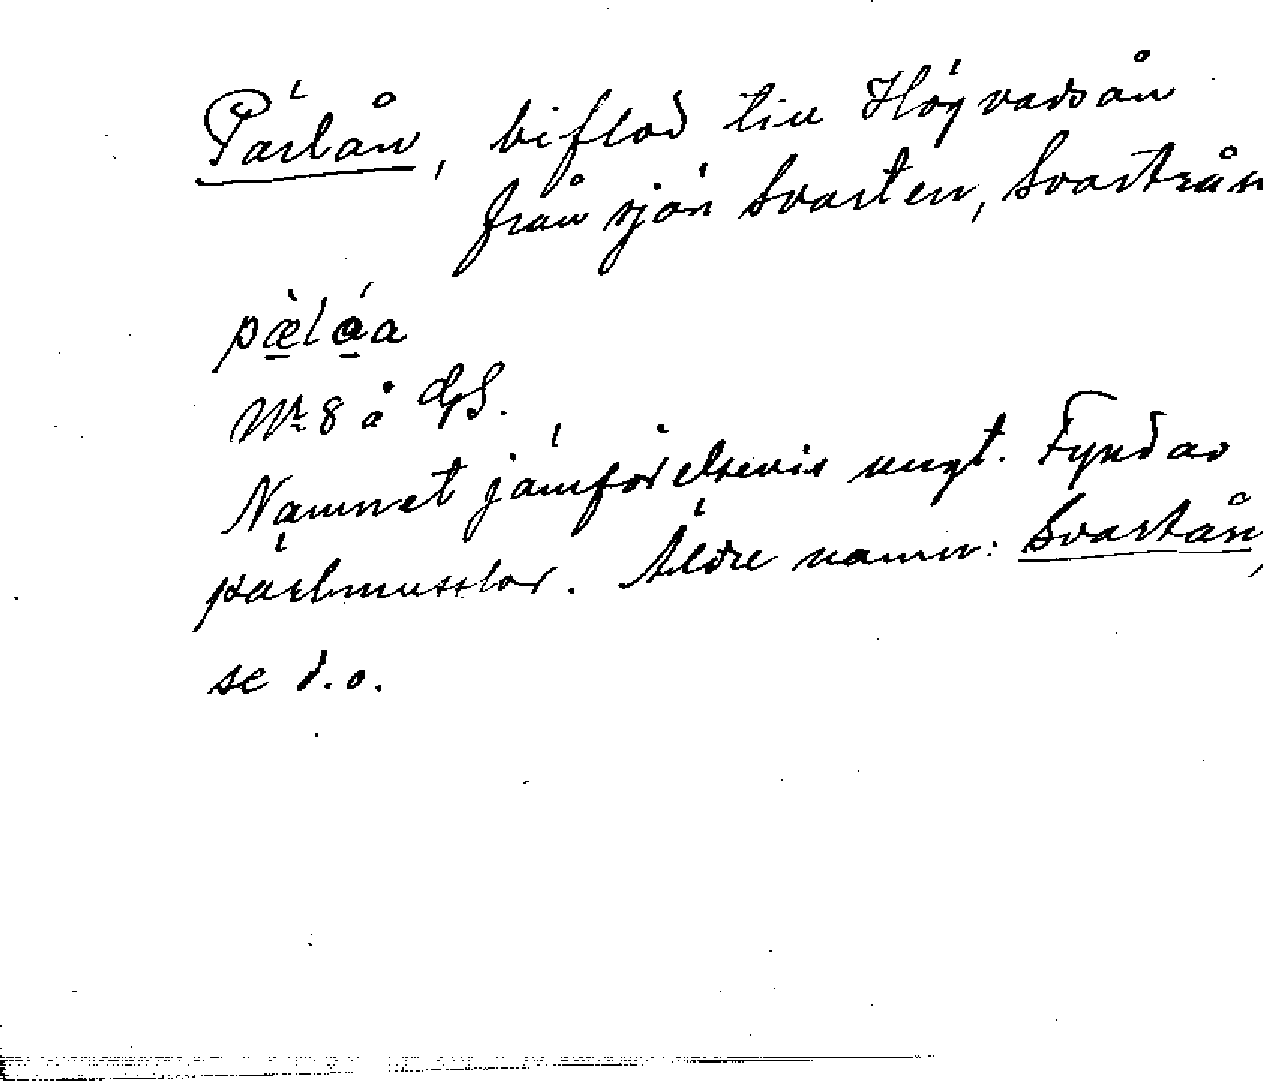 Pärlån, biflod till Högvadsån
från sjön Svarten, Svartrån
pæ̀låa
Nr 8 å GS.
Namnet jämförelsevis ungt. Fynd av
pärlmusslor. Äldre namn: Svartån,
se d.o.